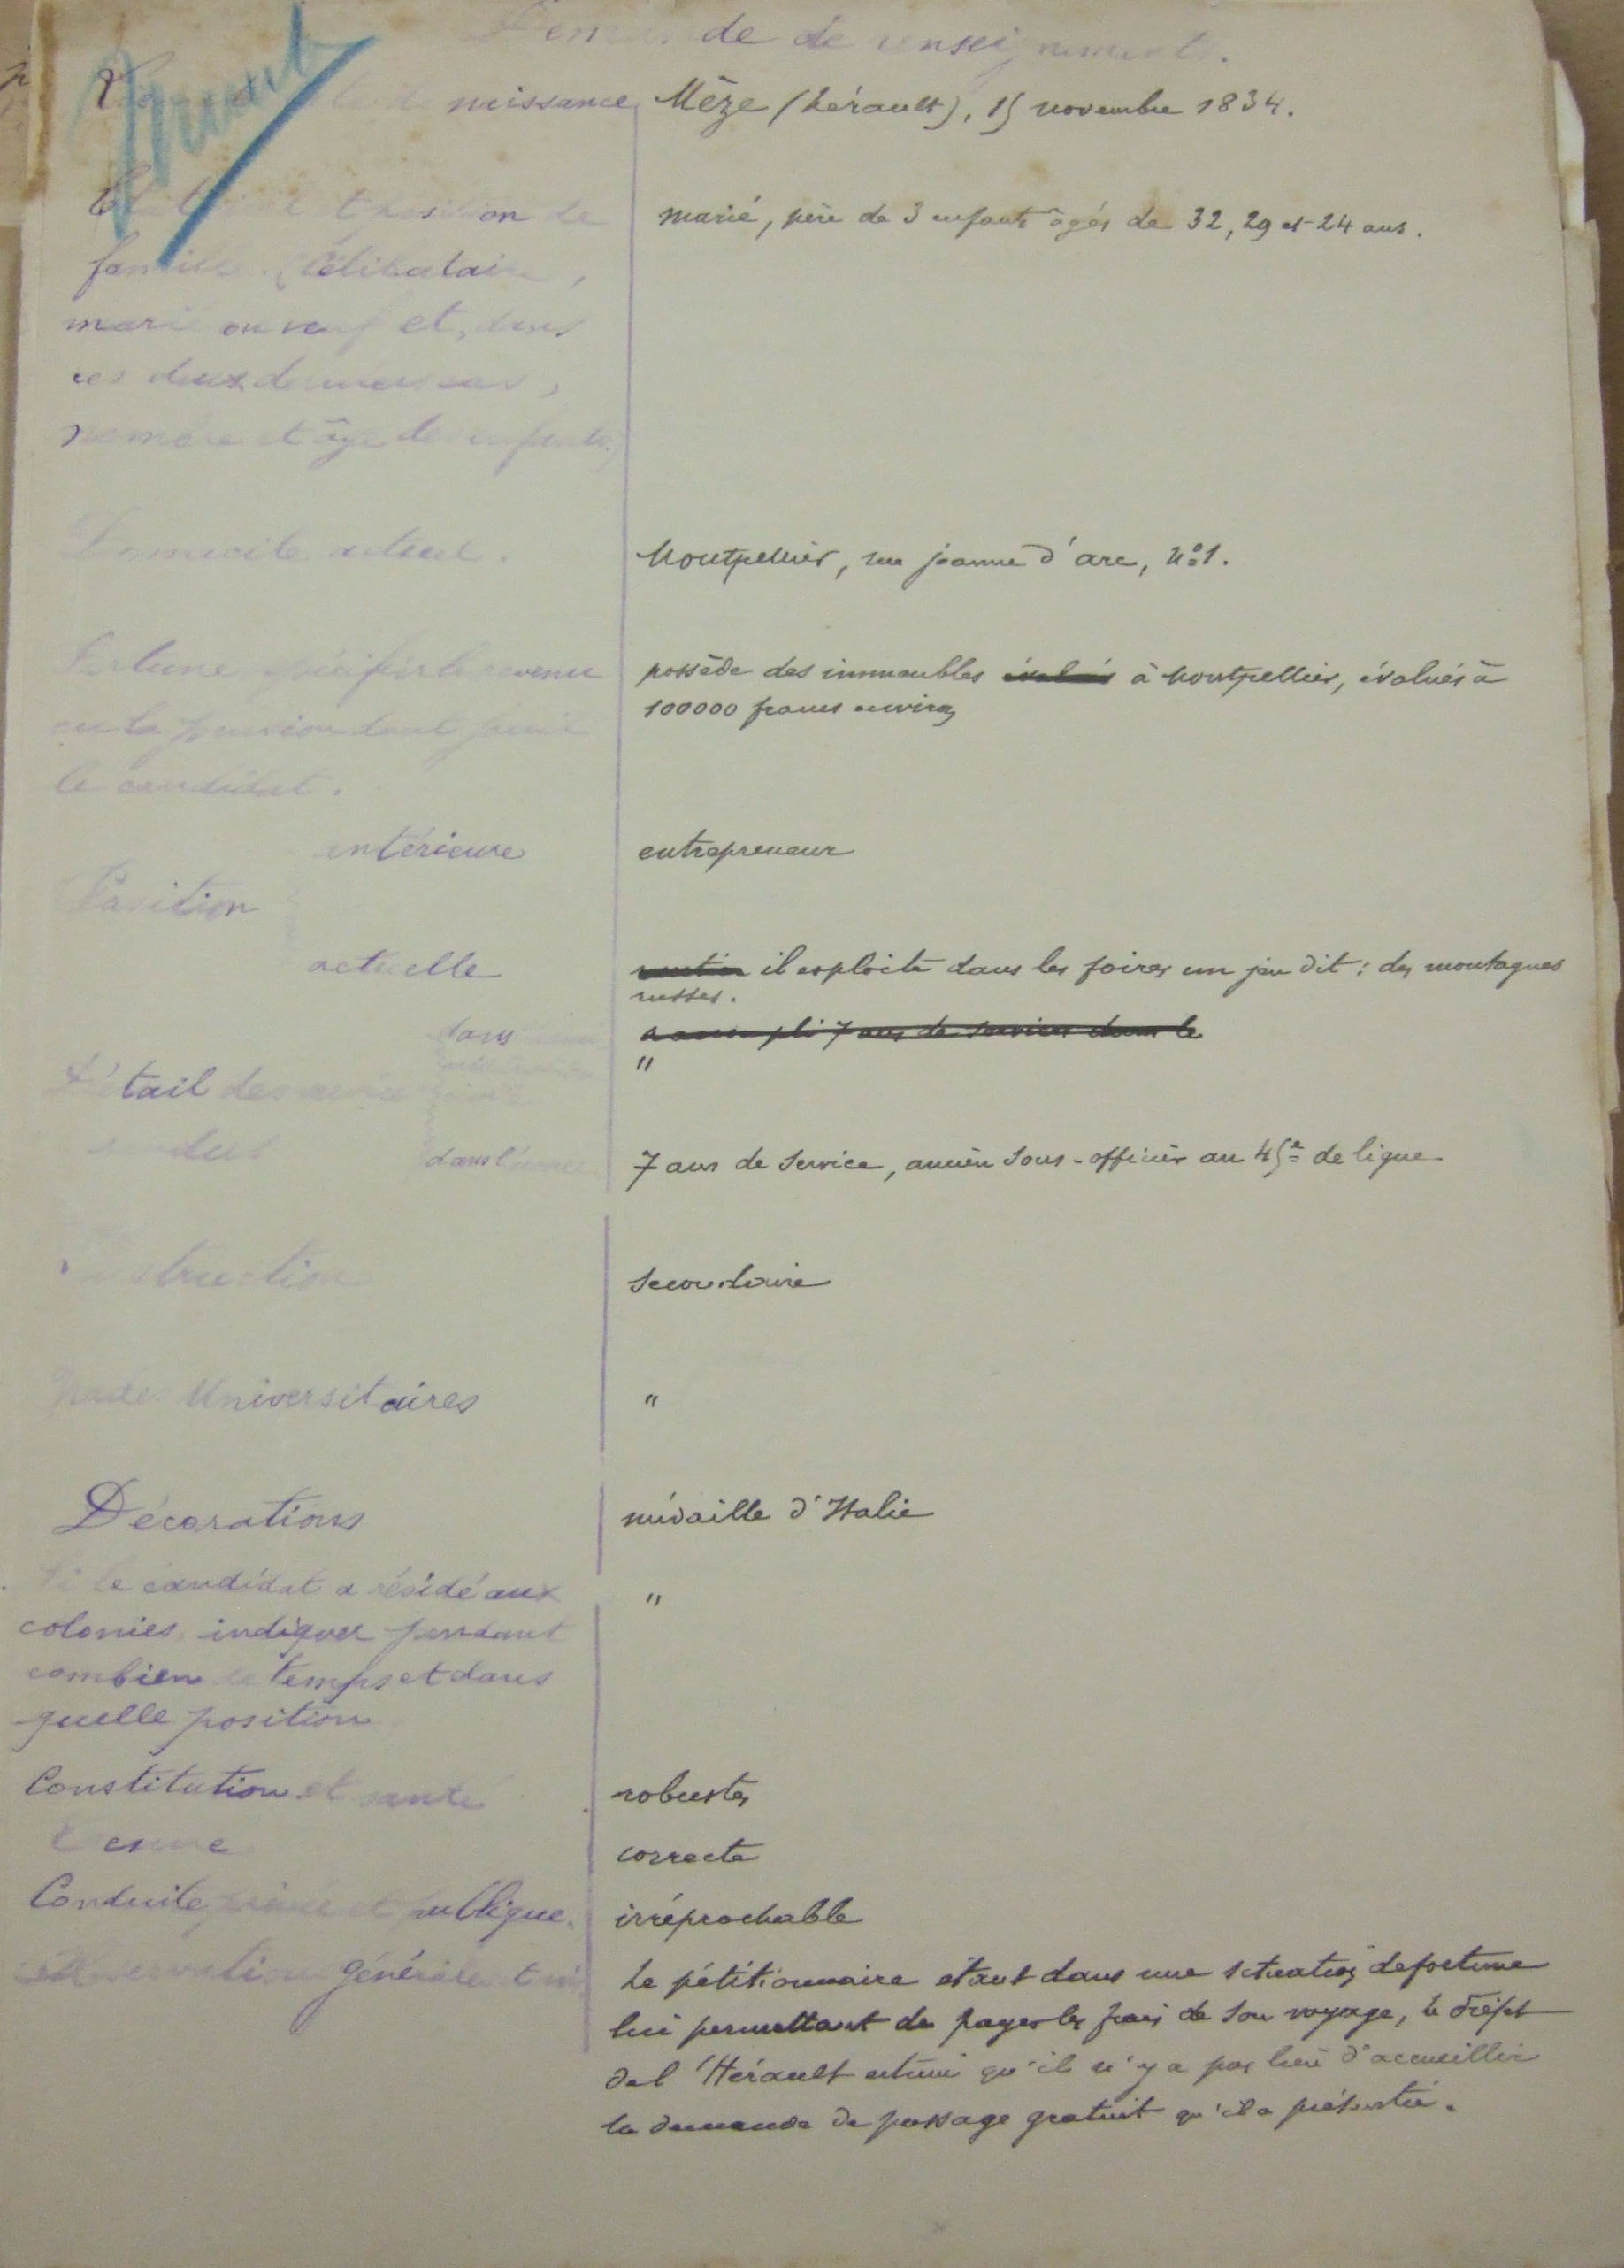 Demande de renseignements.
naissance Mèze (hérault), 15 novembre 1834.
position de marié, père de 3 enfants âgés de 32, 29 et 24 ans.
famille (célibataire,
marié ou veuf et, dans
ces deux derniers cas,
nombre et âge des enfants)
Domicile actuel. Montpellier, rue jeanne d'arc, n° 1.
Fortune revenu possède des immeubles évalués à Montpellier, évalués à
ou la pension dont jouit 100000 francs environ
le candidat.
antérieure entrepreneur
Position
actuelle rentier il exploite dans les foires un jeu dit : des montagnes
russes.
dans a accompli 7 ans de services dans le
"
Détail des services
rendus dans l'armée 7 ans de service, ancien sous-officier au 45e de ligne
Instruction secondaire
Grades Universitaires "
Décorations médaille d'Italie
Si le candidat a résidé aux "
colonies indiquer pendant
combien de temps et dans
quelle position
Constitution et santé robustes
Tenue correcte
Conduite privée et publique. irréprochable
observations générales Le pétitionnaire étant dans une situation de fortune
lui permettant de payer les frais de son voyage, le Préfet
de l'Hérault estime qu'il n'y a pas lieu d'accueillir
la demande de passage gratuit qu'il a présentée.